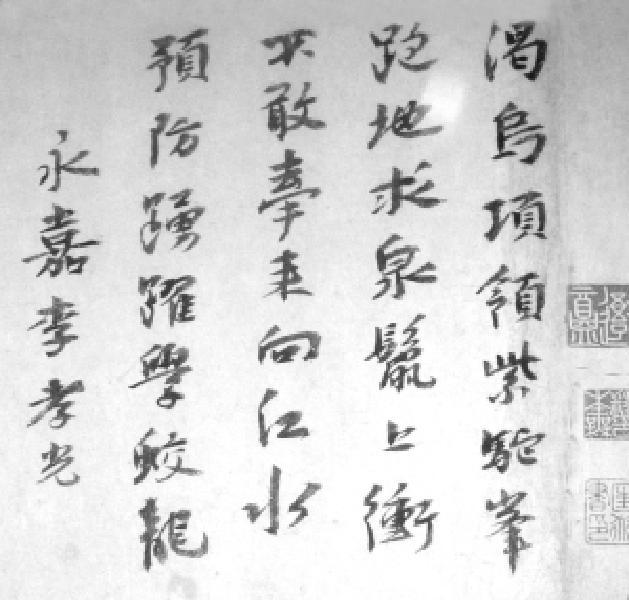 渴烏項領紫駝峯
跑地求泉鬣上衝
不敢牽来向江水
預防踴躍學蛟龍
永嘉李孝光